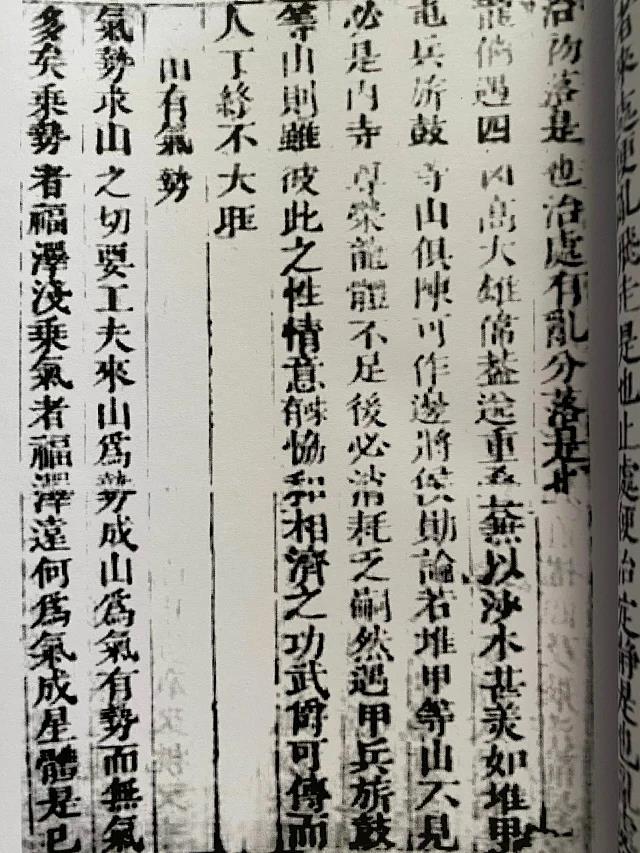 治物落是也治處有亂分落是也
龍倘遇四凶高大雄席蓋送重叠無以沙水甚美如堆甲
屯兵旂鼓等山俱陳可作邊將侯助論若堆甲等山不見
必是內寺尊榮龍體不足後必消耗乏嗣然遇甲兵旂鼓
等山則雖彼此之性情意觧恊和相濟之功武爵可傳而
人丁終不大旺
山有氣勢
氣勢求山之切要工夫來山為勢成山為氣有勢而無氣
多矣乘勢者福澤淺乘氣者福澤遠何為氣成星體是已